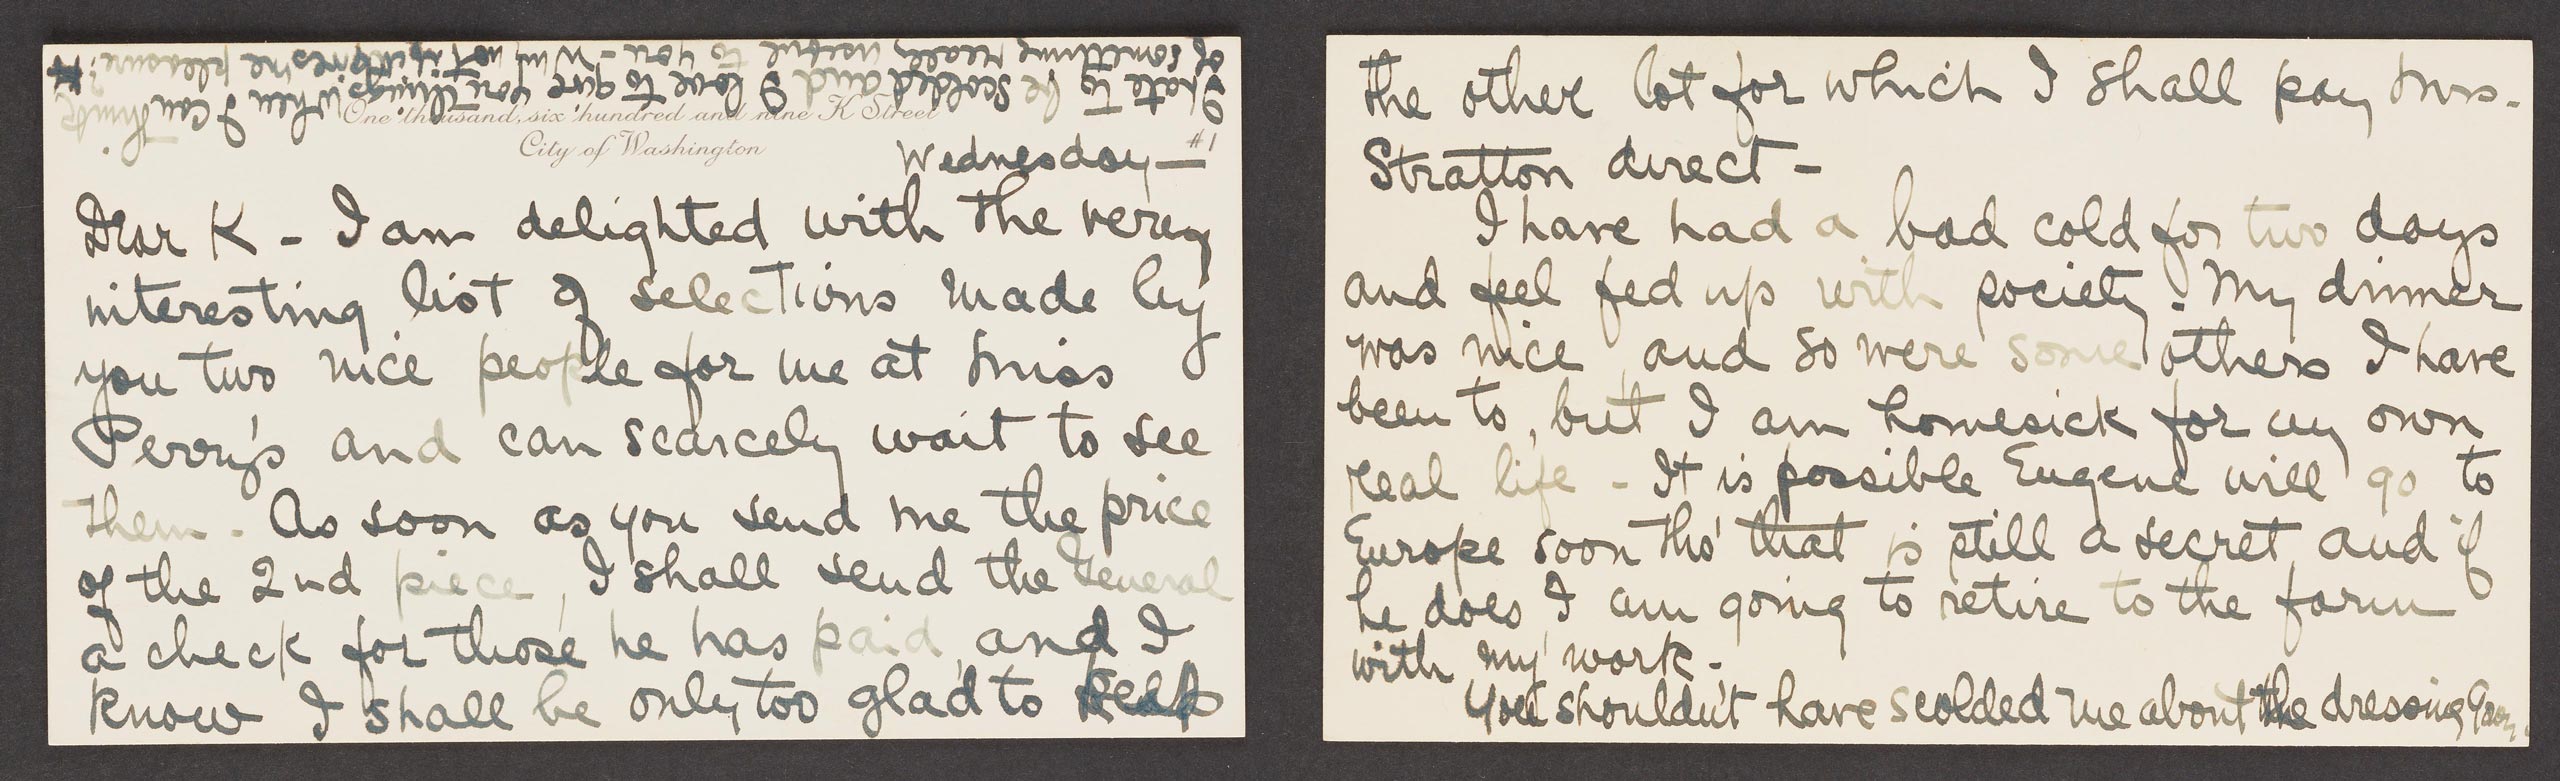 One thousand, six hundred and nine K Street
City of Washington
Wednesday — #1
Dear K - I am delighted with the very
interesting list of selections made by
you two nice people for me at Miss
Perry's and can scarcely wait to see
them - As soon as you send me the price
of the 2nd piece, I shall send the General
a check for those he has paid, and I
know I shall be only too glad to keep
the other lot for which I shall pay Mrs.
Stratton direct -
I have had a bad cold for two days
and feel fed up with society. My dinner
was nice, and so were some others I have
been to, but I am homesick for my own
real life - It is possible Eugene will go to
Europe soon tho' that is still a secret, and if
he does I am going to retire to the farm
with my work -
You shouldn't have scolded me about the dressing gown.
I hate to be scolded and I love to give you things when I can think
of something really useful to you - Why not if it gives me pleasure?